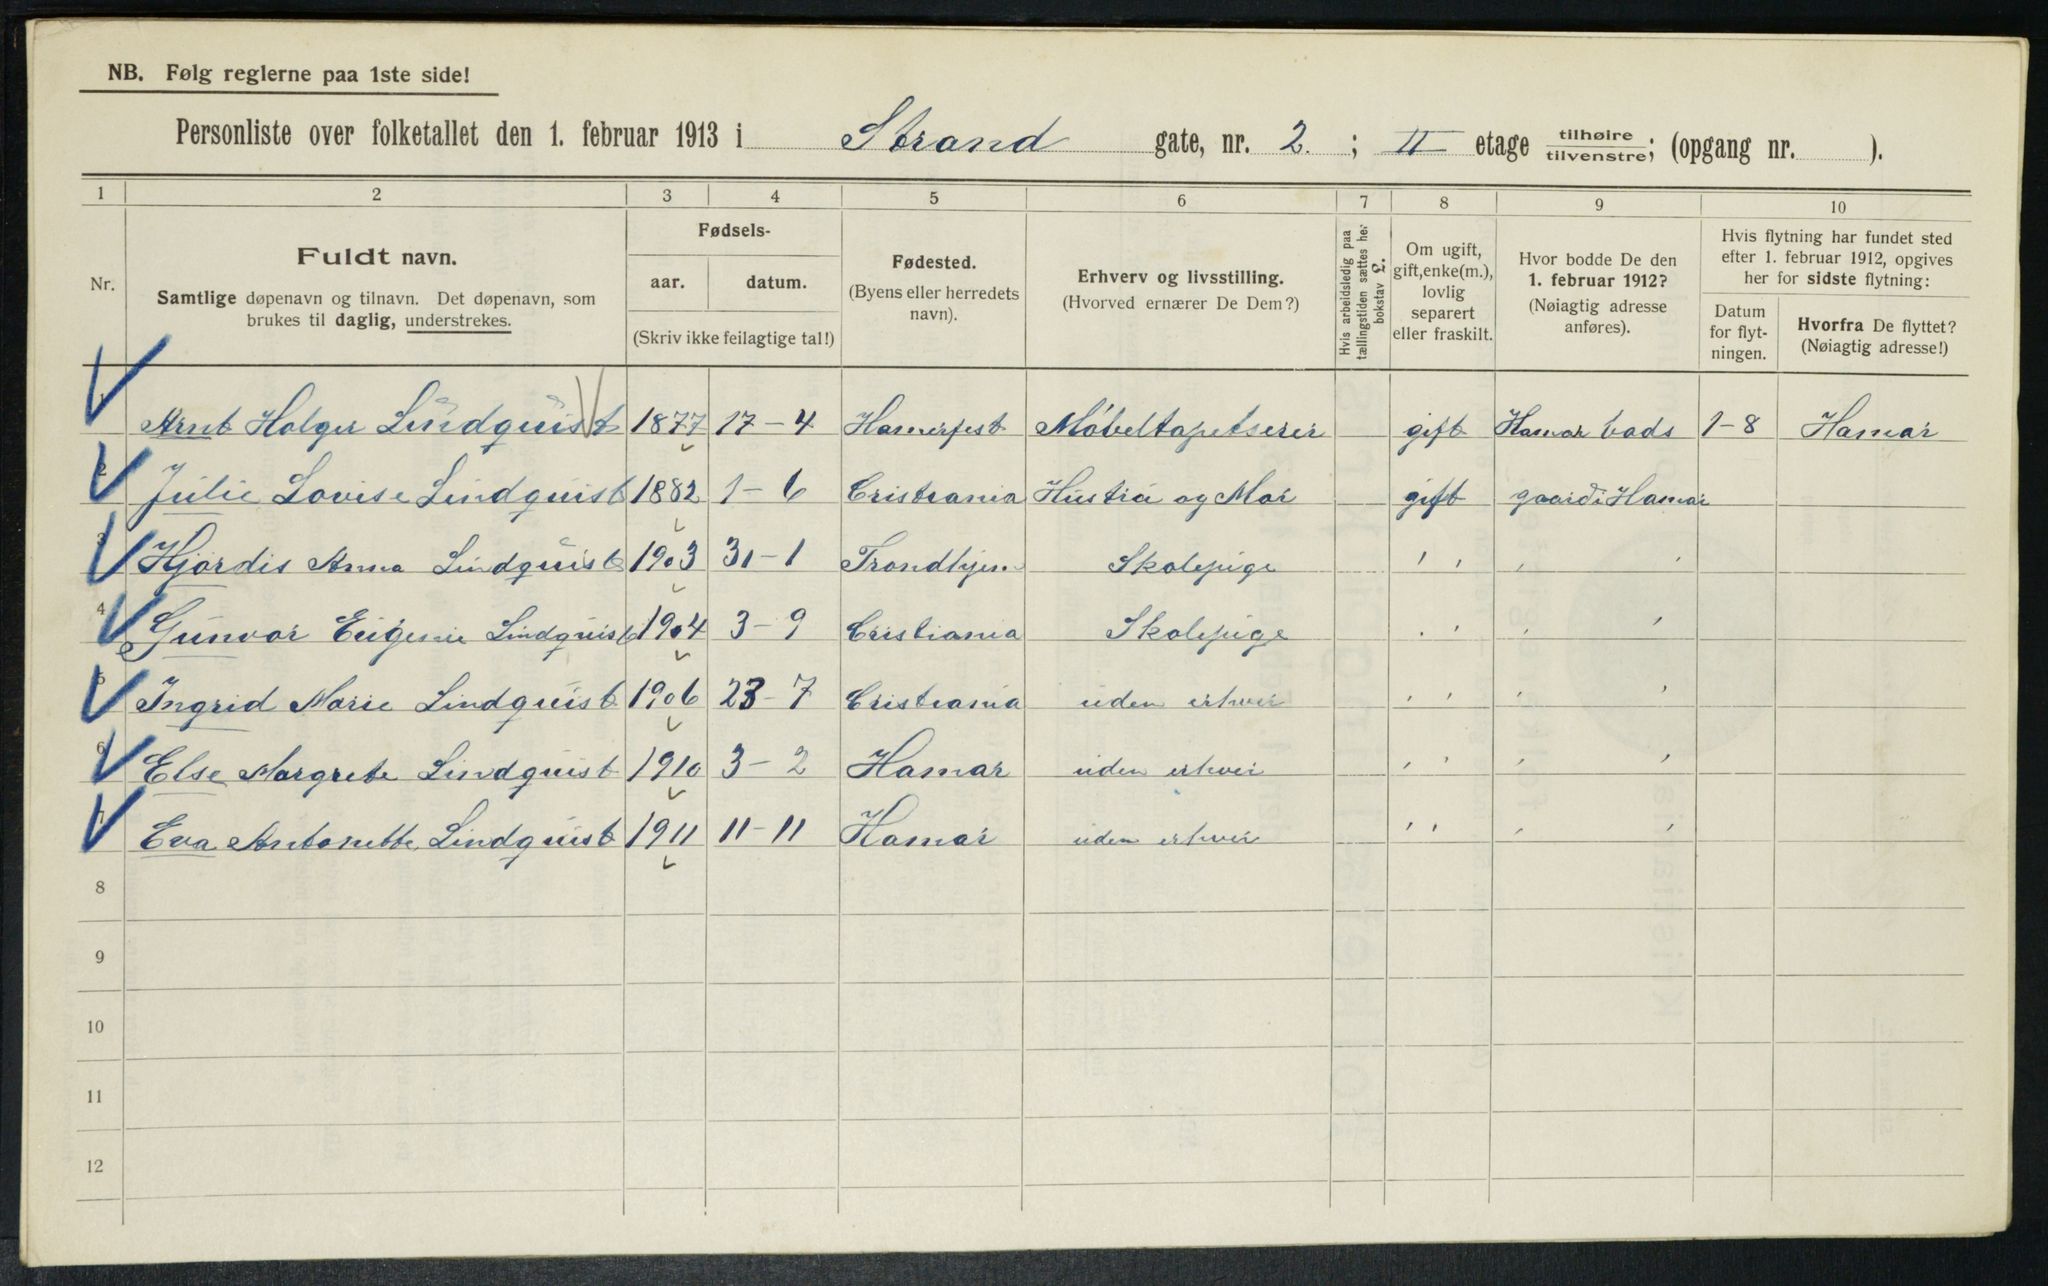 NB. Følg reglerne paa 1ste side!
Personliste over folketallet den 1. februar 1913 i Strand gate, nr. 2 ; II etage tilhøire tilvenstre; (opgang nr. ).
1 2 3 4 5 6 7 8 9 10
Nr.
Fuldt navn.
Samtlige døpenavn og tilnavn. Det døpenavn, som
brukes til daglig, understrekes.
Fødsels-
aar. datum.
(Skriv ikke feilagtige tal!)
Fødested.
(Byens eller herredets
navn).
Erhverv og livsstilling.
(Hvorved ernærer De Dem?)
Hvis arbeidsledig paa
tællingstiden sættes her
bokstav L.
Om ugift,
gift, enke(m.),
lovlig
separert
eller fraskilt.
Hvor bodde De den
1. februar 1912?
(Nøiagtig adresse
anføres).
Hvis flytning har fundet sted
efter 1. februar 1912, opgives
her for sidste flytning:
Datum
for flyt-
ningen.
Hvorfra De flyttet?
(Nøiagtig adresse!)
1 Arnt Holger Lindquist 1877 17-4 Hamerfest Møbeltapetserer gift Hamar bads 1-8 Hamar
2 Julie Lovise Lindquist 1882 1-6 Cristiania Hustru og Mor gift gaard i Hamar
3 Hjørdis Anna Lindquist 1903 31-1 Trondhjem Skolepige " " "
4 Gunvor Eugenie Lindquist 1904 3-9 Cristiania Skolepige " " "
5 Ingrid Marie Lindquist 1906 23-7 Cristiania uden erhver " " "
6 Else Margrete Lindquist 1910 3-2 Hamar uden erhver " " "
7 Eva Antonette Lindquist 1911 11-11 Hamar uden erhver " " "
8
9
10
11
12